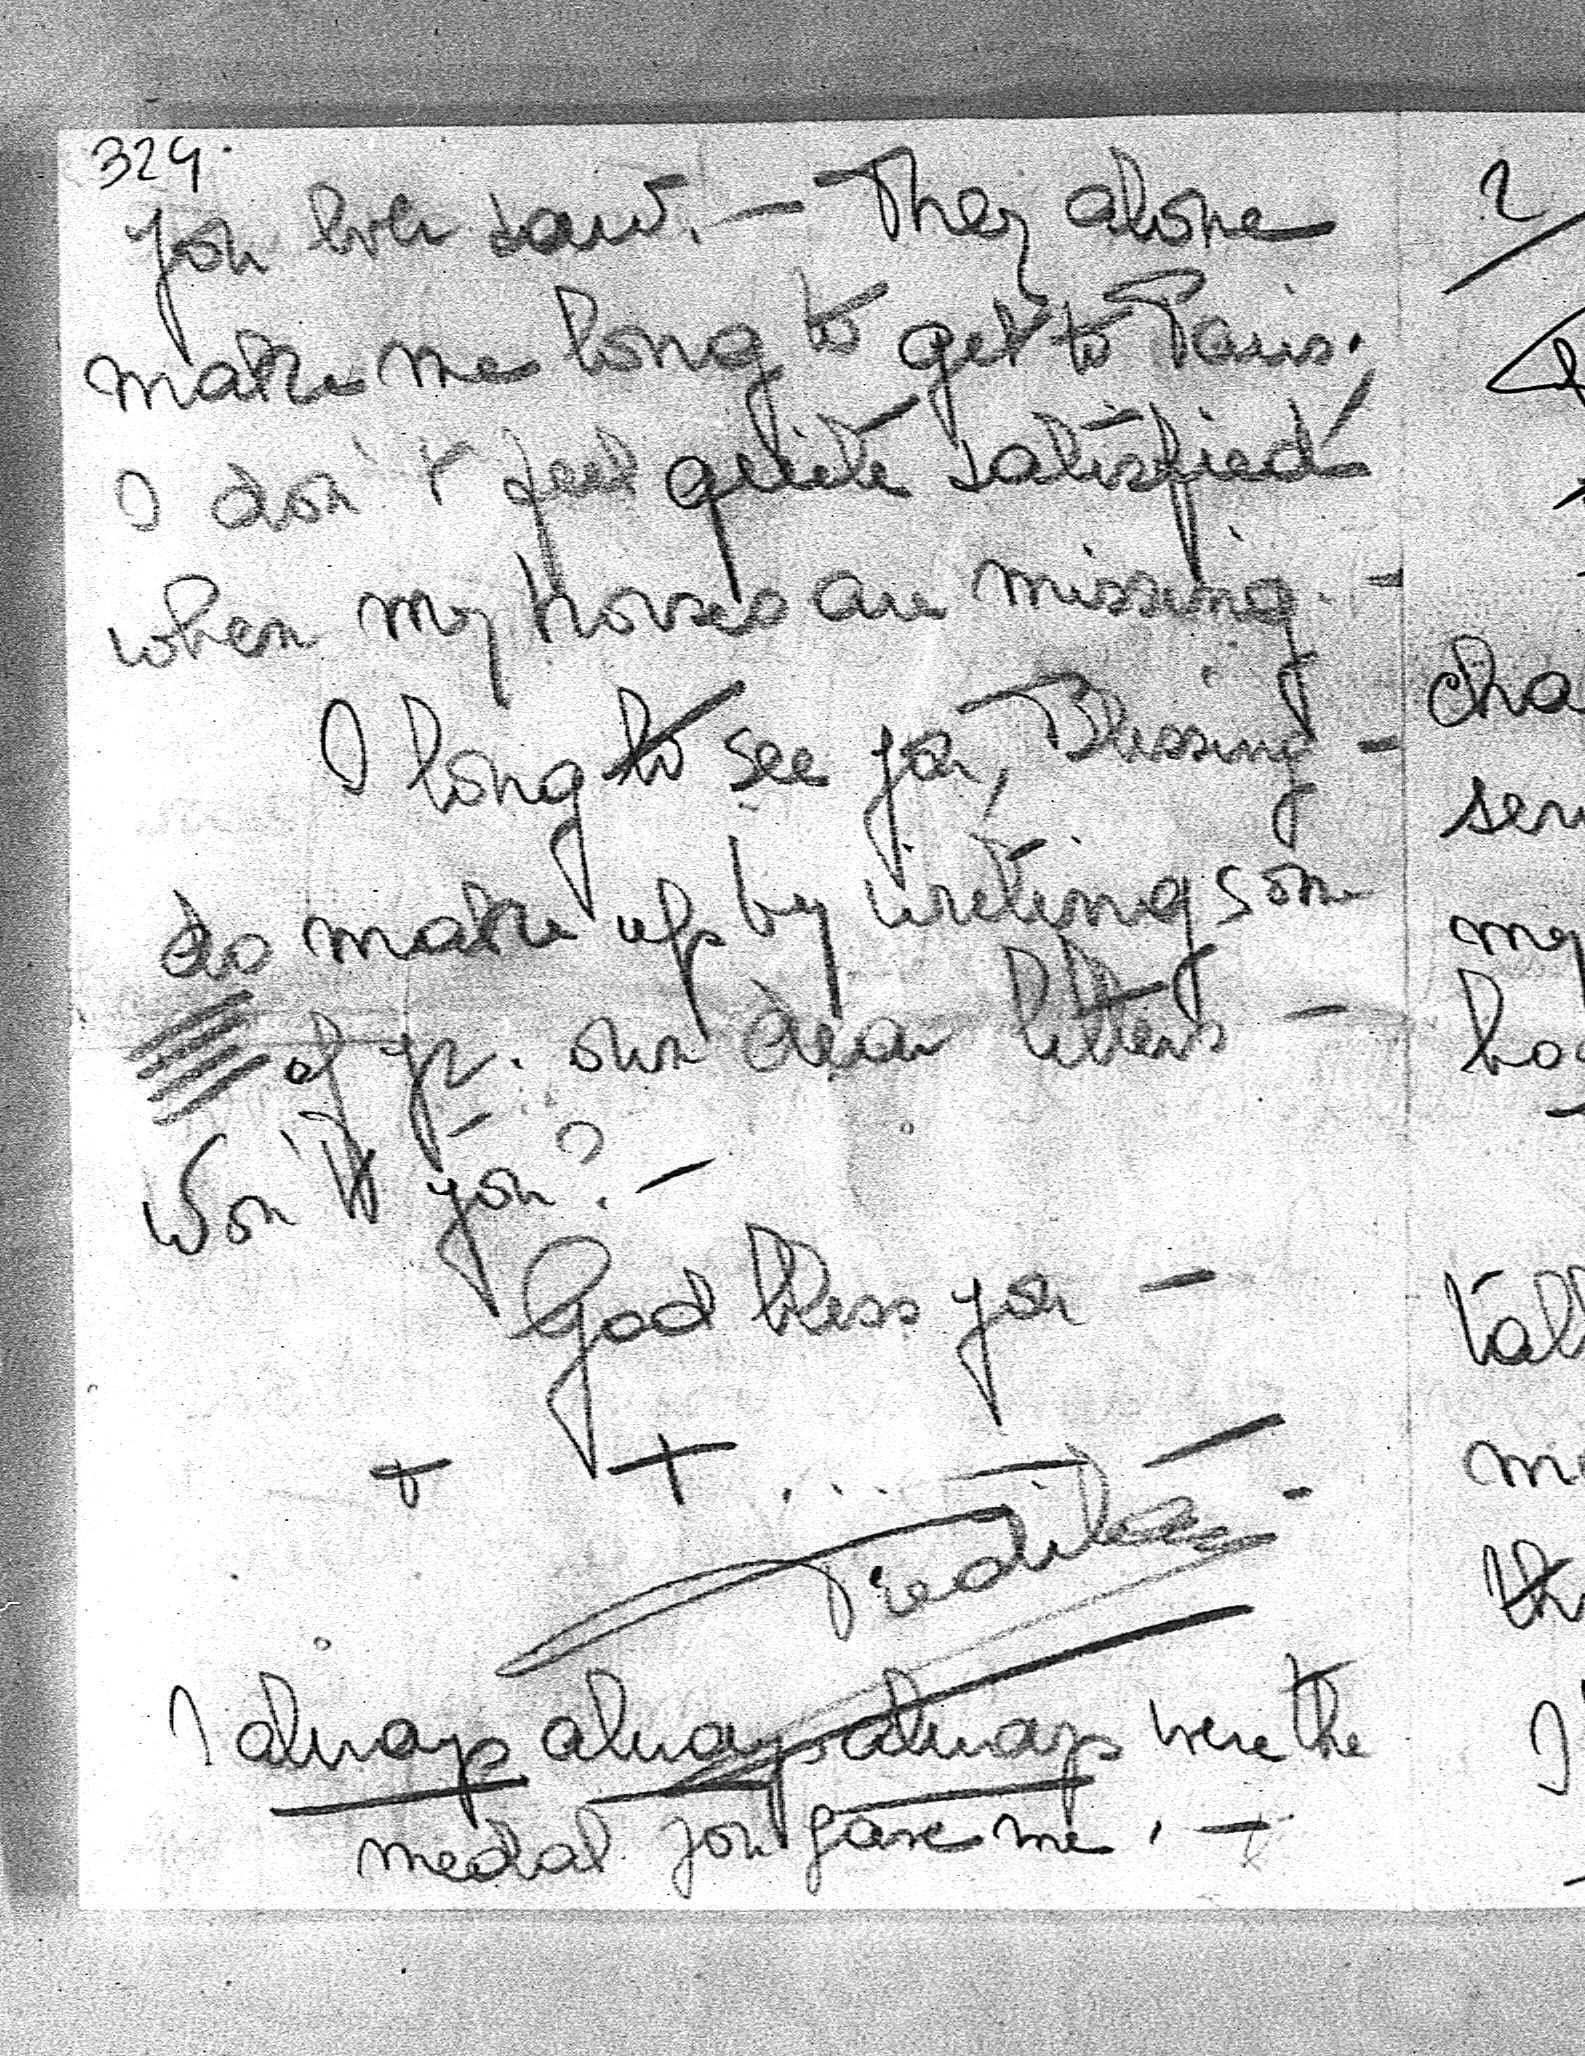 324.
you ever saw. — They alone
make me long to get to Paris.
I don't feel quite satisfied
when my horses are missing. —
I long to see you, Blessing —
do make up by writing some
of yr. own dear letters —
Won't you? —
God bless you —
+ + ... —
I always always always wear the
medal you gave me. —
2
cha
my
tall
me
I